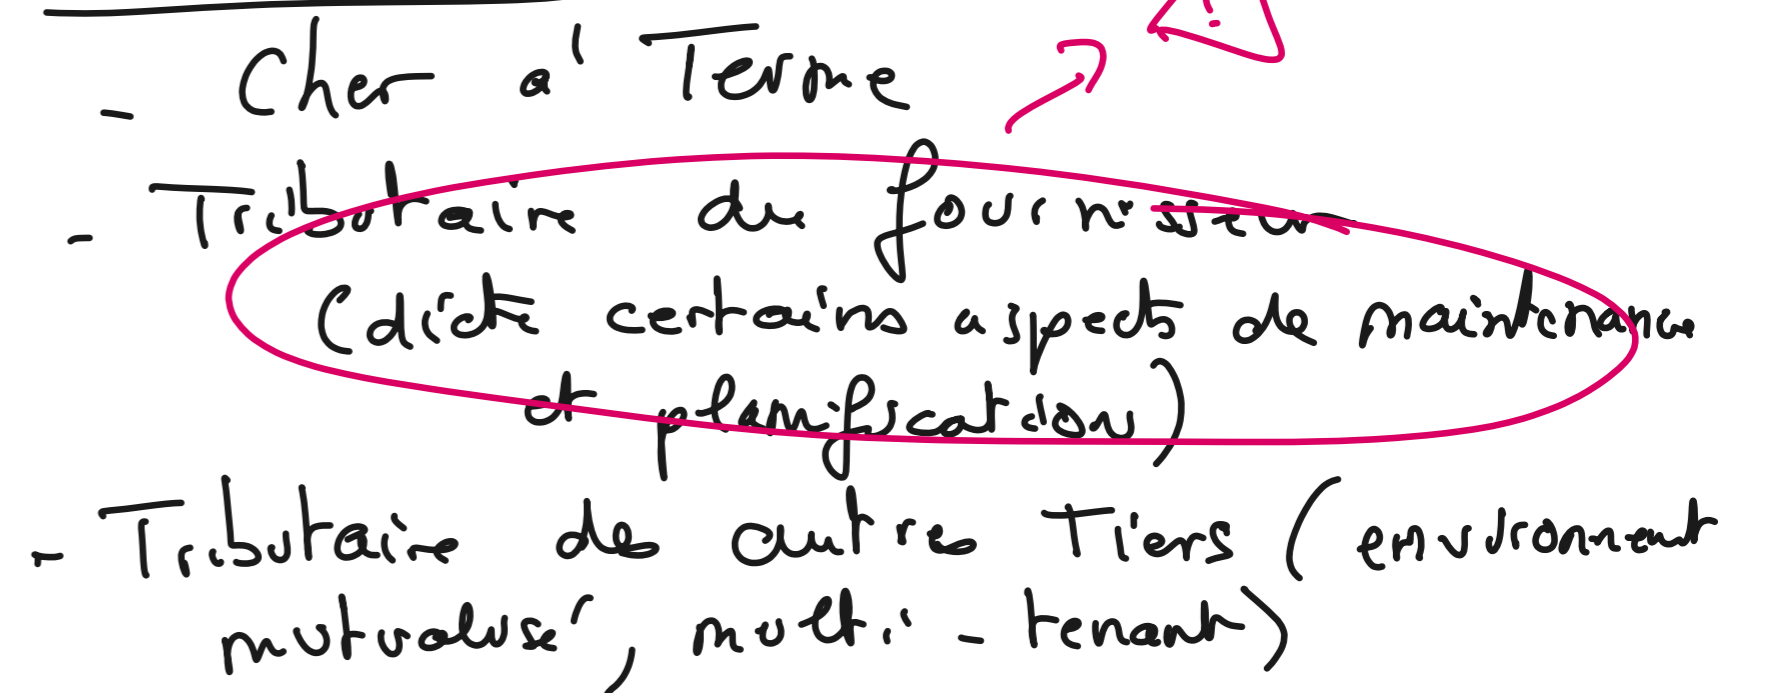 - Cher à Terme
- Tributaire du fournisseur
(dicte certains aspects de maintenance
et planification)
- Tributaire des autres Tiers (environnement
mutualisé, multi-tenant)